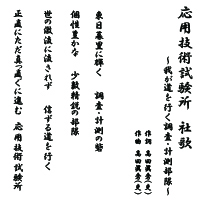 応用技術試験所　社歌
～我が道を行く調査・計測部隊～
作詞　高田眞秀(史)
作曲　高田眞秀(史)
東日暮里に輝く　調査・計測の砦
個性豊かな　少数精鋭の部隊
世の激流に流されず　信ずる道を行く
正直にただ真っ直ぐに進む　応用技術試験所